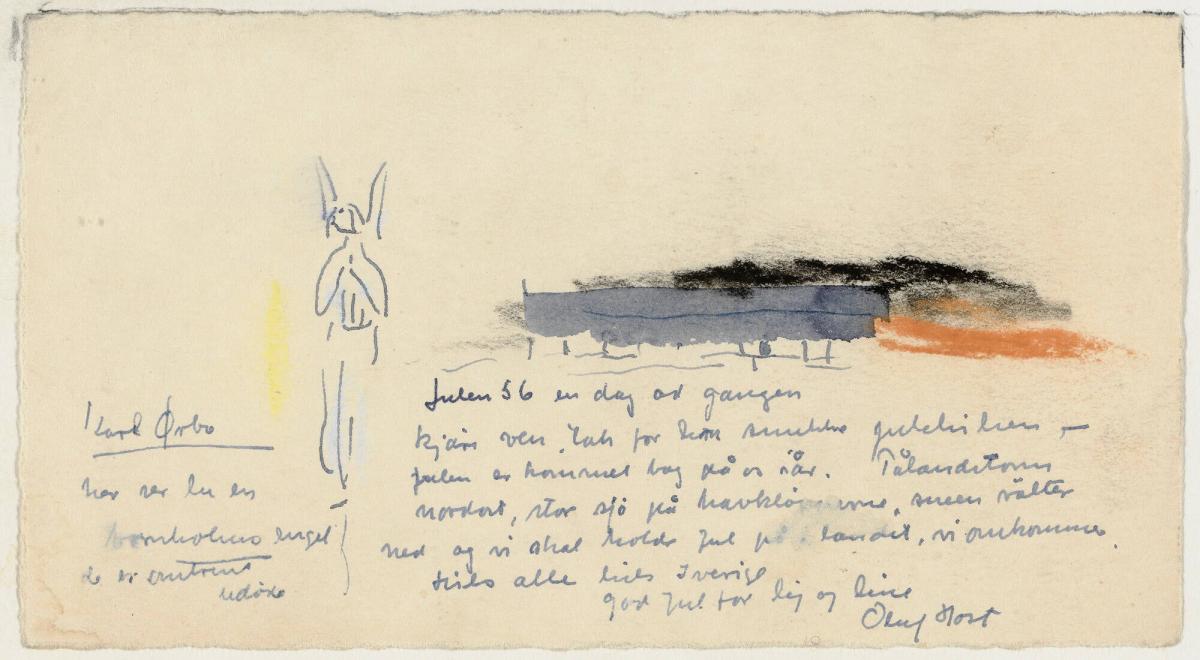 Karl Ørbo
her ser du en
bornholms engel
de er omtrent
uddøde
Julen 56 en dag ad gangen
kjäre ven, tak for din smukke julehilsen —
julen er kommet bag på os iår. Pålandstorm
nordost, stor sjö på havklöpperne, sneen välter
ned og vi skal holde jul på landet, vi omkommer.
hils alle hils Sverige
god jul for dig og dine
Oluf Høst